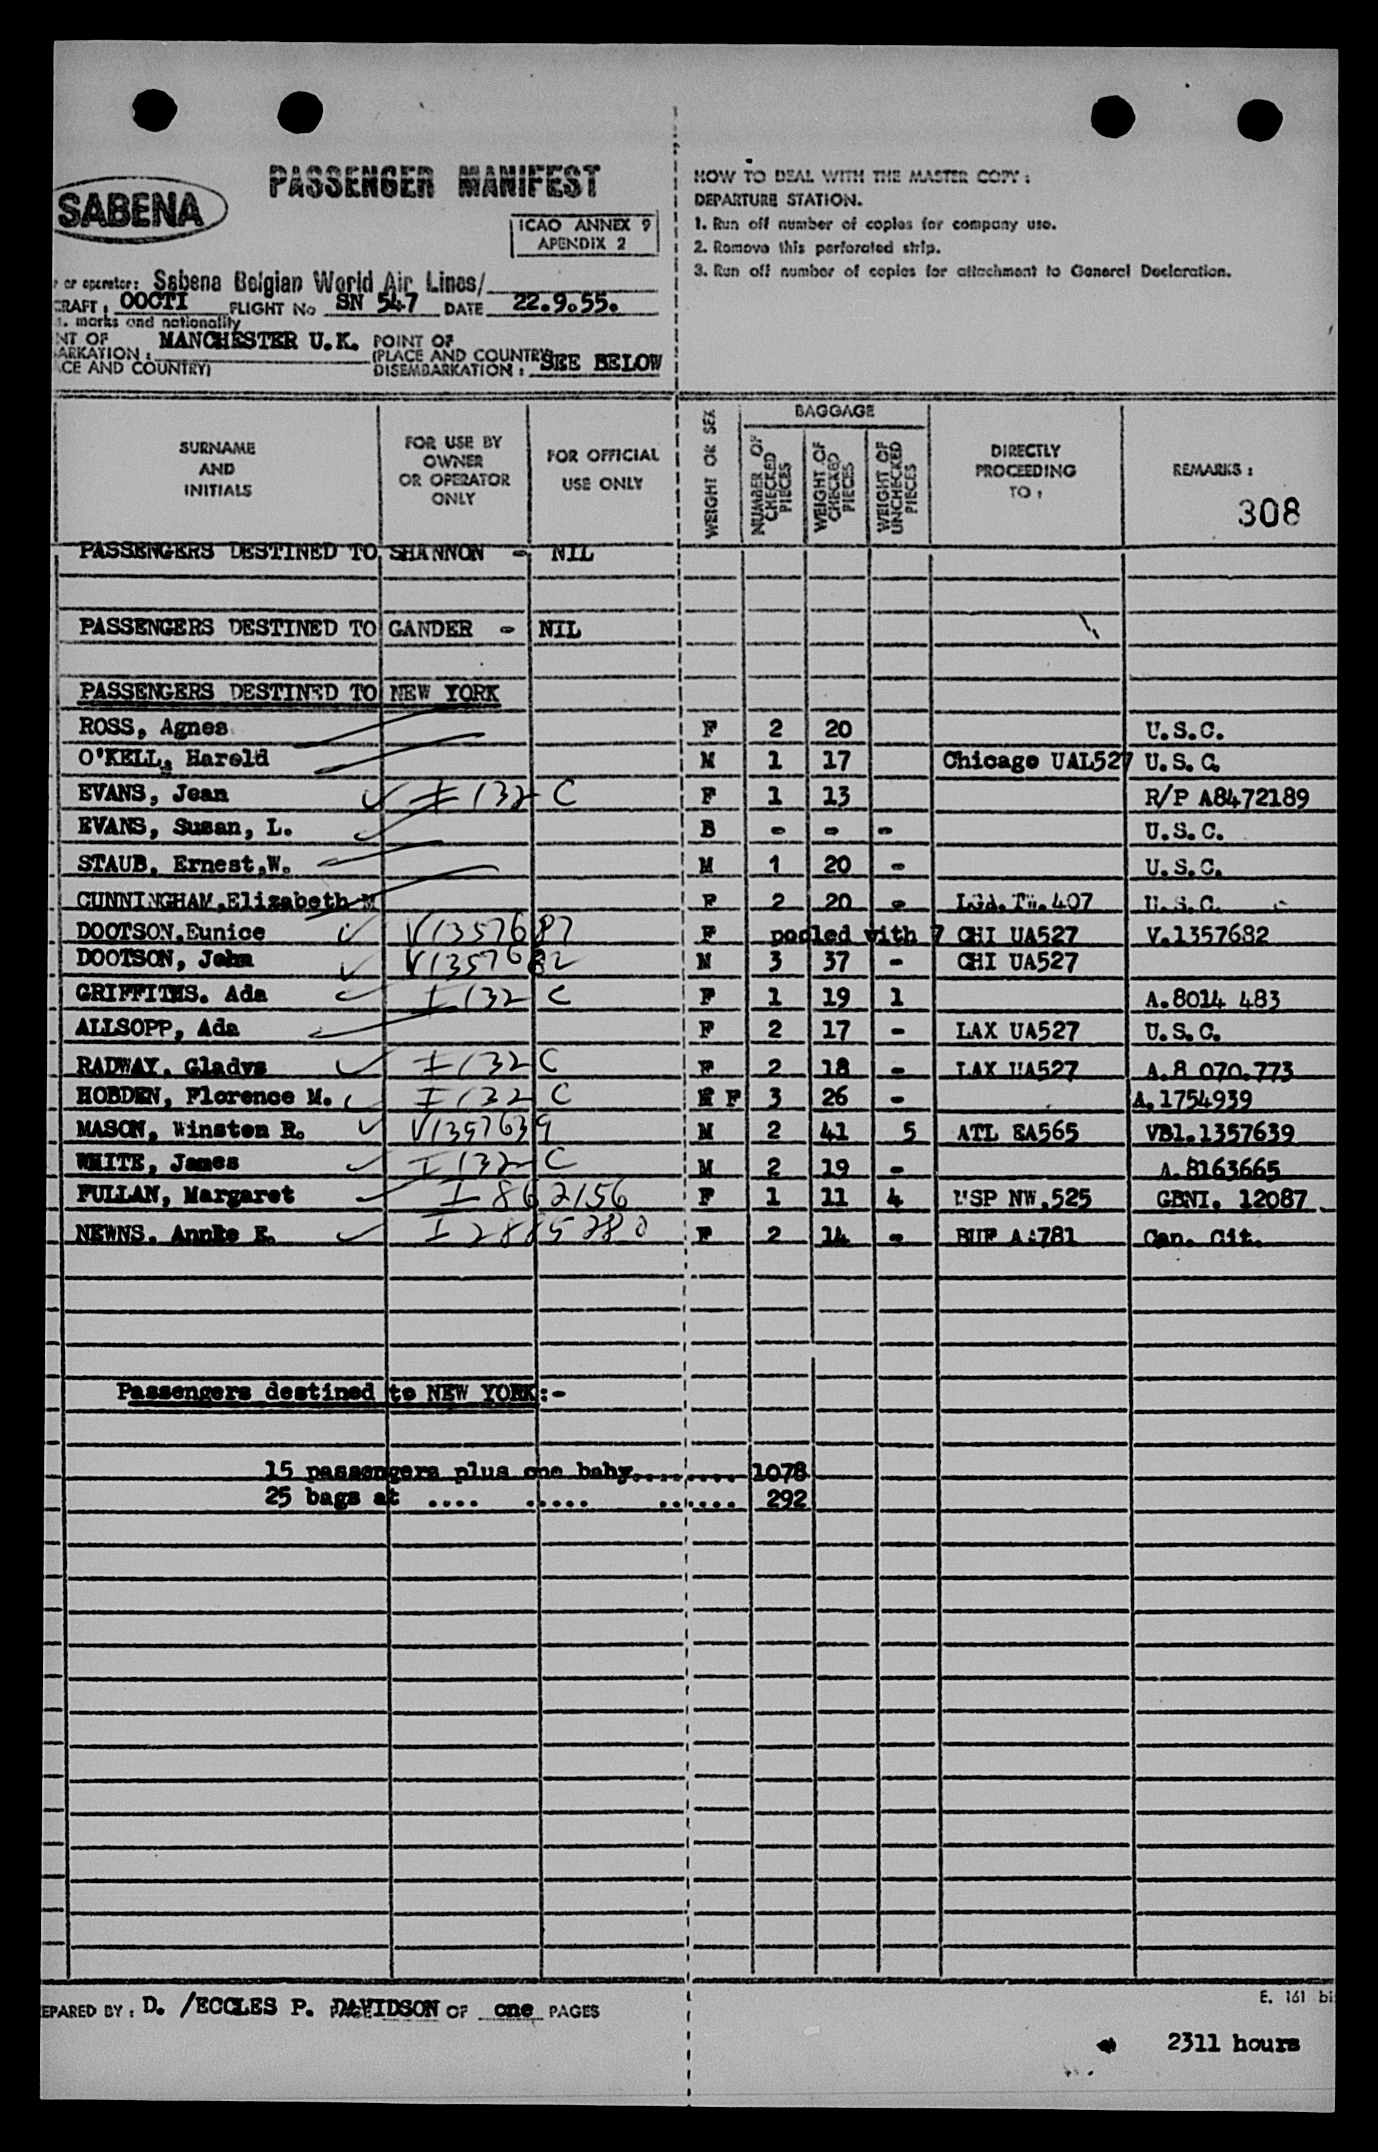 PASSENGER MANIFEST
SABENA
ICAO ANNEX 9
APENDIX 2
or operator: Sabena Belgian World Air Lines/
CRAFT: OOCTI FLIGHT No SN 547 DATE 22.9.55.
marks and nationality
NT OF MANCHESTER U.K. POINT OF
ARKATION: (PLACE AND COUNTRY) SEE BELOW
ACE AND COUNTRY) DISEMBARKATION:
HOW TO DEAL WITH THE MASTER COPY:
DEPARTURE STATION.
1. Run off number of copies for company use.
2. Remove this perforated strip.
3. Run off number of copies for attachment to General Declaration.
SURNAME AND INITIALS
FOR USE BY OWNER OR OPERATOR ONLY
FOR OFFICIAL USE ONLY
WEIGHT OR SEX
BAGGAGE
NUMBER OF CHECKED PIECES
WEIGHT OF CHECKED PIECES
WEIGHT OF UNCHECKED PIECES
DIRECTLY PROCEEDING TO:
REMARKS:
308
PASSENGERS DESTINED TO SHANNON - NIL
PASSENGERS DESTINED TO GANDER - NIL
PASSENGERS DESTINED TO NEW YORK
ROSS, Agnes F 2 20 U.S.C.
O'KELL, Harold M 1 17 Chicago UAL527 U.S.C.
EVANS, Jean I 132 C F 1 13 R/P A8472189
EVANS, Susan, L. B - - - U.S.C.
STAUB, Ernest,W. M 1 20 - U.S.C.
CUNNINGHAM,Elizabeth M F 2 20 - 407 U.S.C.
DOOTSON,Eunice V1357687 F pooled with 7 CHI UA527 V.1357682
DOOTSON, John V1357682 M 3 37 - CHI UA527
GRIFFITHS. Ada I 132 C F 1 19 1 A.8014 483
ALLSOPP, Ada F 2 17 - LAX UA527 U.S.C.
RADWAY, Gladys I 132 C F 2 18 - LAX UA527 A.8 070.773
HOBDEN, Florence M. I 132 C F 3 26 - A.1754939
MASON, Winston R. V1357639 M 2 41 5 ATL EA565 VB1.1357639
WHITE, James I 132 C M 2 19 - A.8163665
FULLAN, Margaret I 862156 F 1 11 4 MSP NW.525 GBNI. 12087
NEWNS. E. I 2885280 F 2 14 - BUF AA781 Can. Cit.
Passengers destined to NEW YORK:-
15 passengers plus one baby........ 1078
25 bags at .... ..... ...... 292
EPARED BY: D. /ECCLES P. DAVIDSON OF one PAGES
E. 161 bi
2311 hours